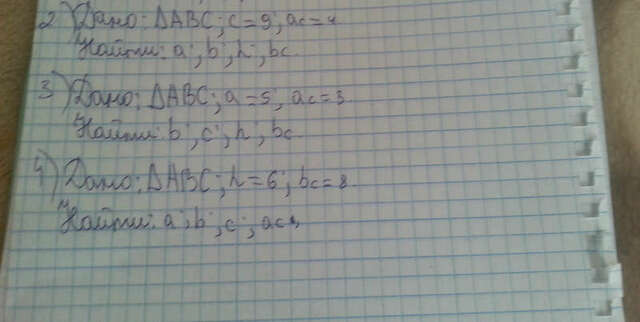 2) Дано: ΔABC; c=9; ac=4
Найти: a; b; h; bc
3) Дано: ΔABC; a=5; ac=3
Найти: b; c; h; bc
4) Дано: ΔABC; h=6; bc=8
Найти: a; b; c; ac